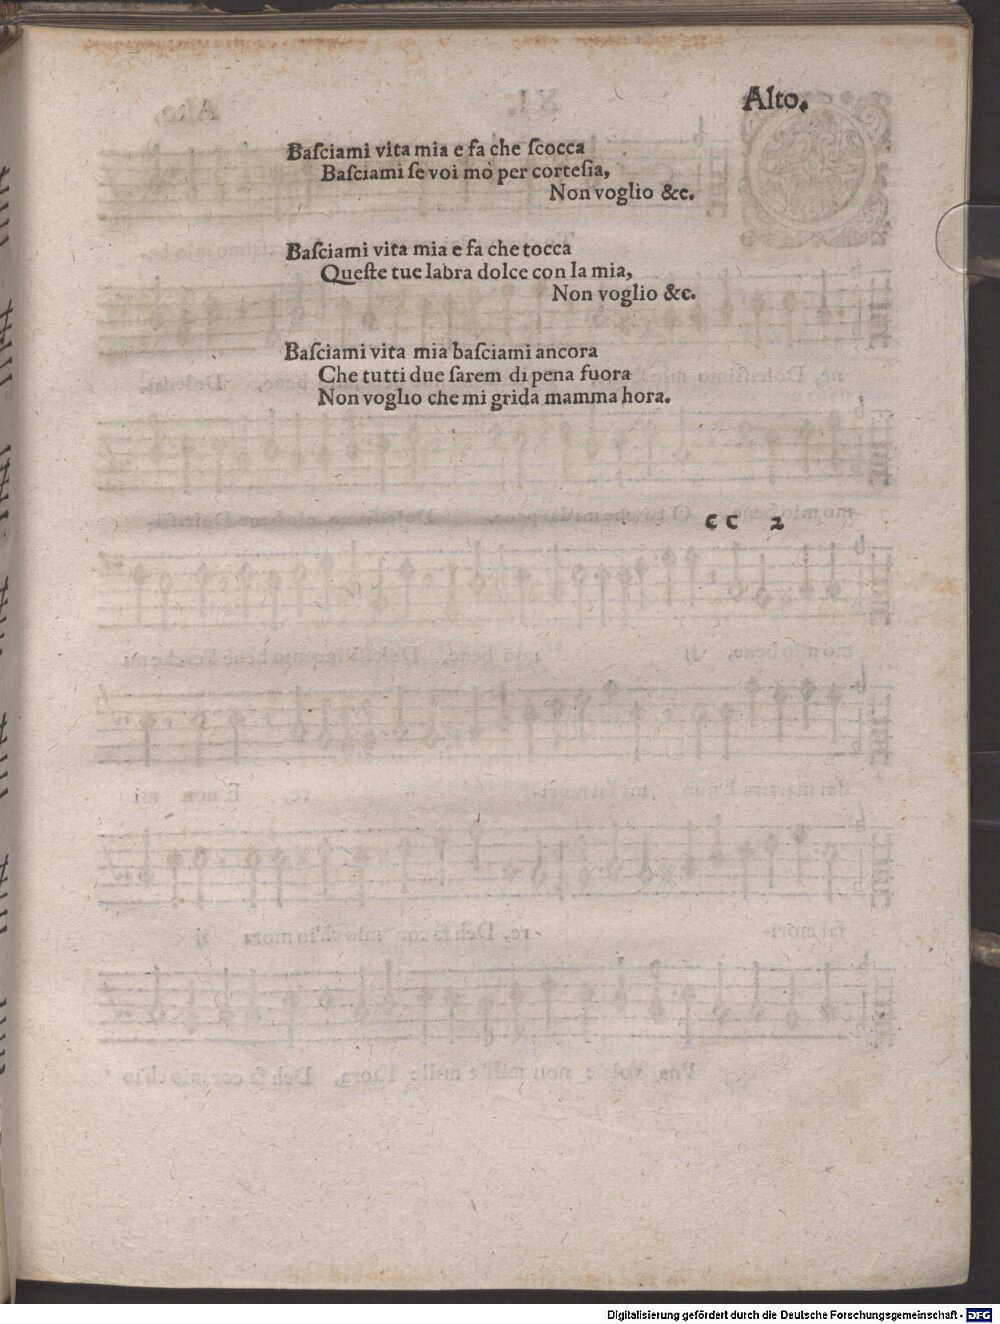 Alto.
Baſciami vita mia e fa che ſcocca
Baſciami ſe voi mò per corteſia,
Non voglio &c.
Baſciami vita mia e fa che tocca
Queſte tue labra dolce con la mia,
Non voglio &c.
Baſciami vita mia baſciami ancora
Che tutti due ſarem di pena fuora
Non voglio che mi grida mamma hora.
CC 2
Digitalisierung gefördert durch die Deutsche Forschungsgemeinschaft - DFG